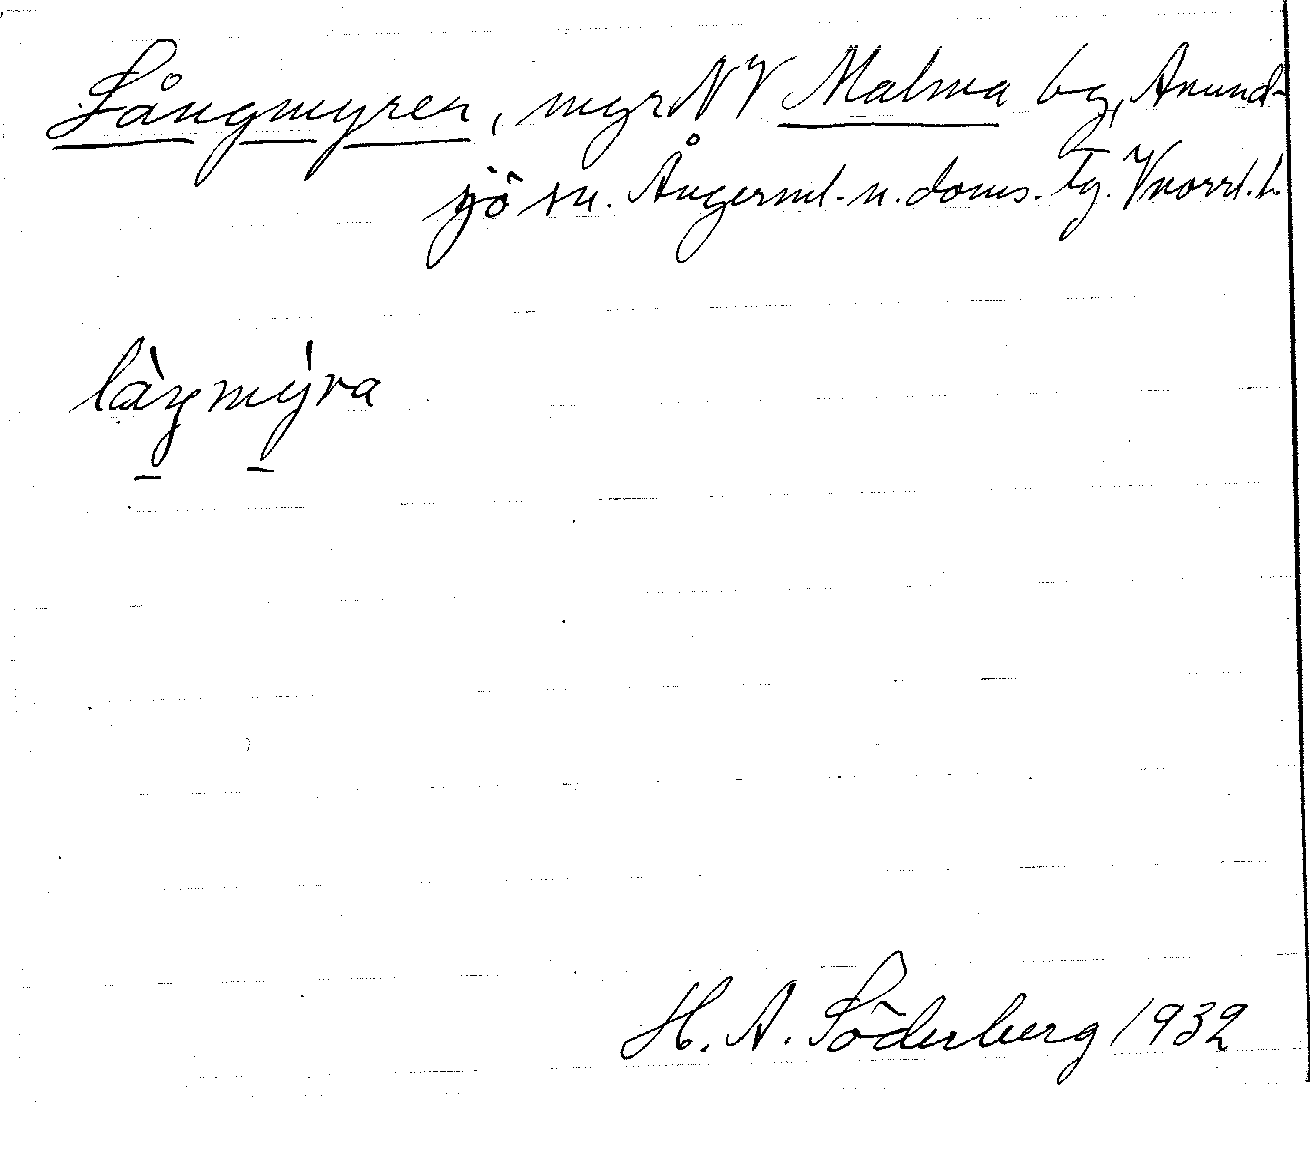 Långmyren, myr NV Malma by, Anund-
sjö sn. Ångerml. n. doms. tg. Vnorrl. l.
làŋmýra
H. A. Söderberg 1932